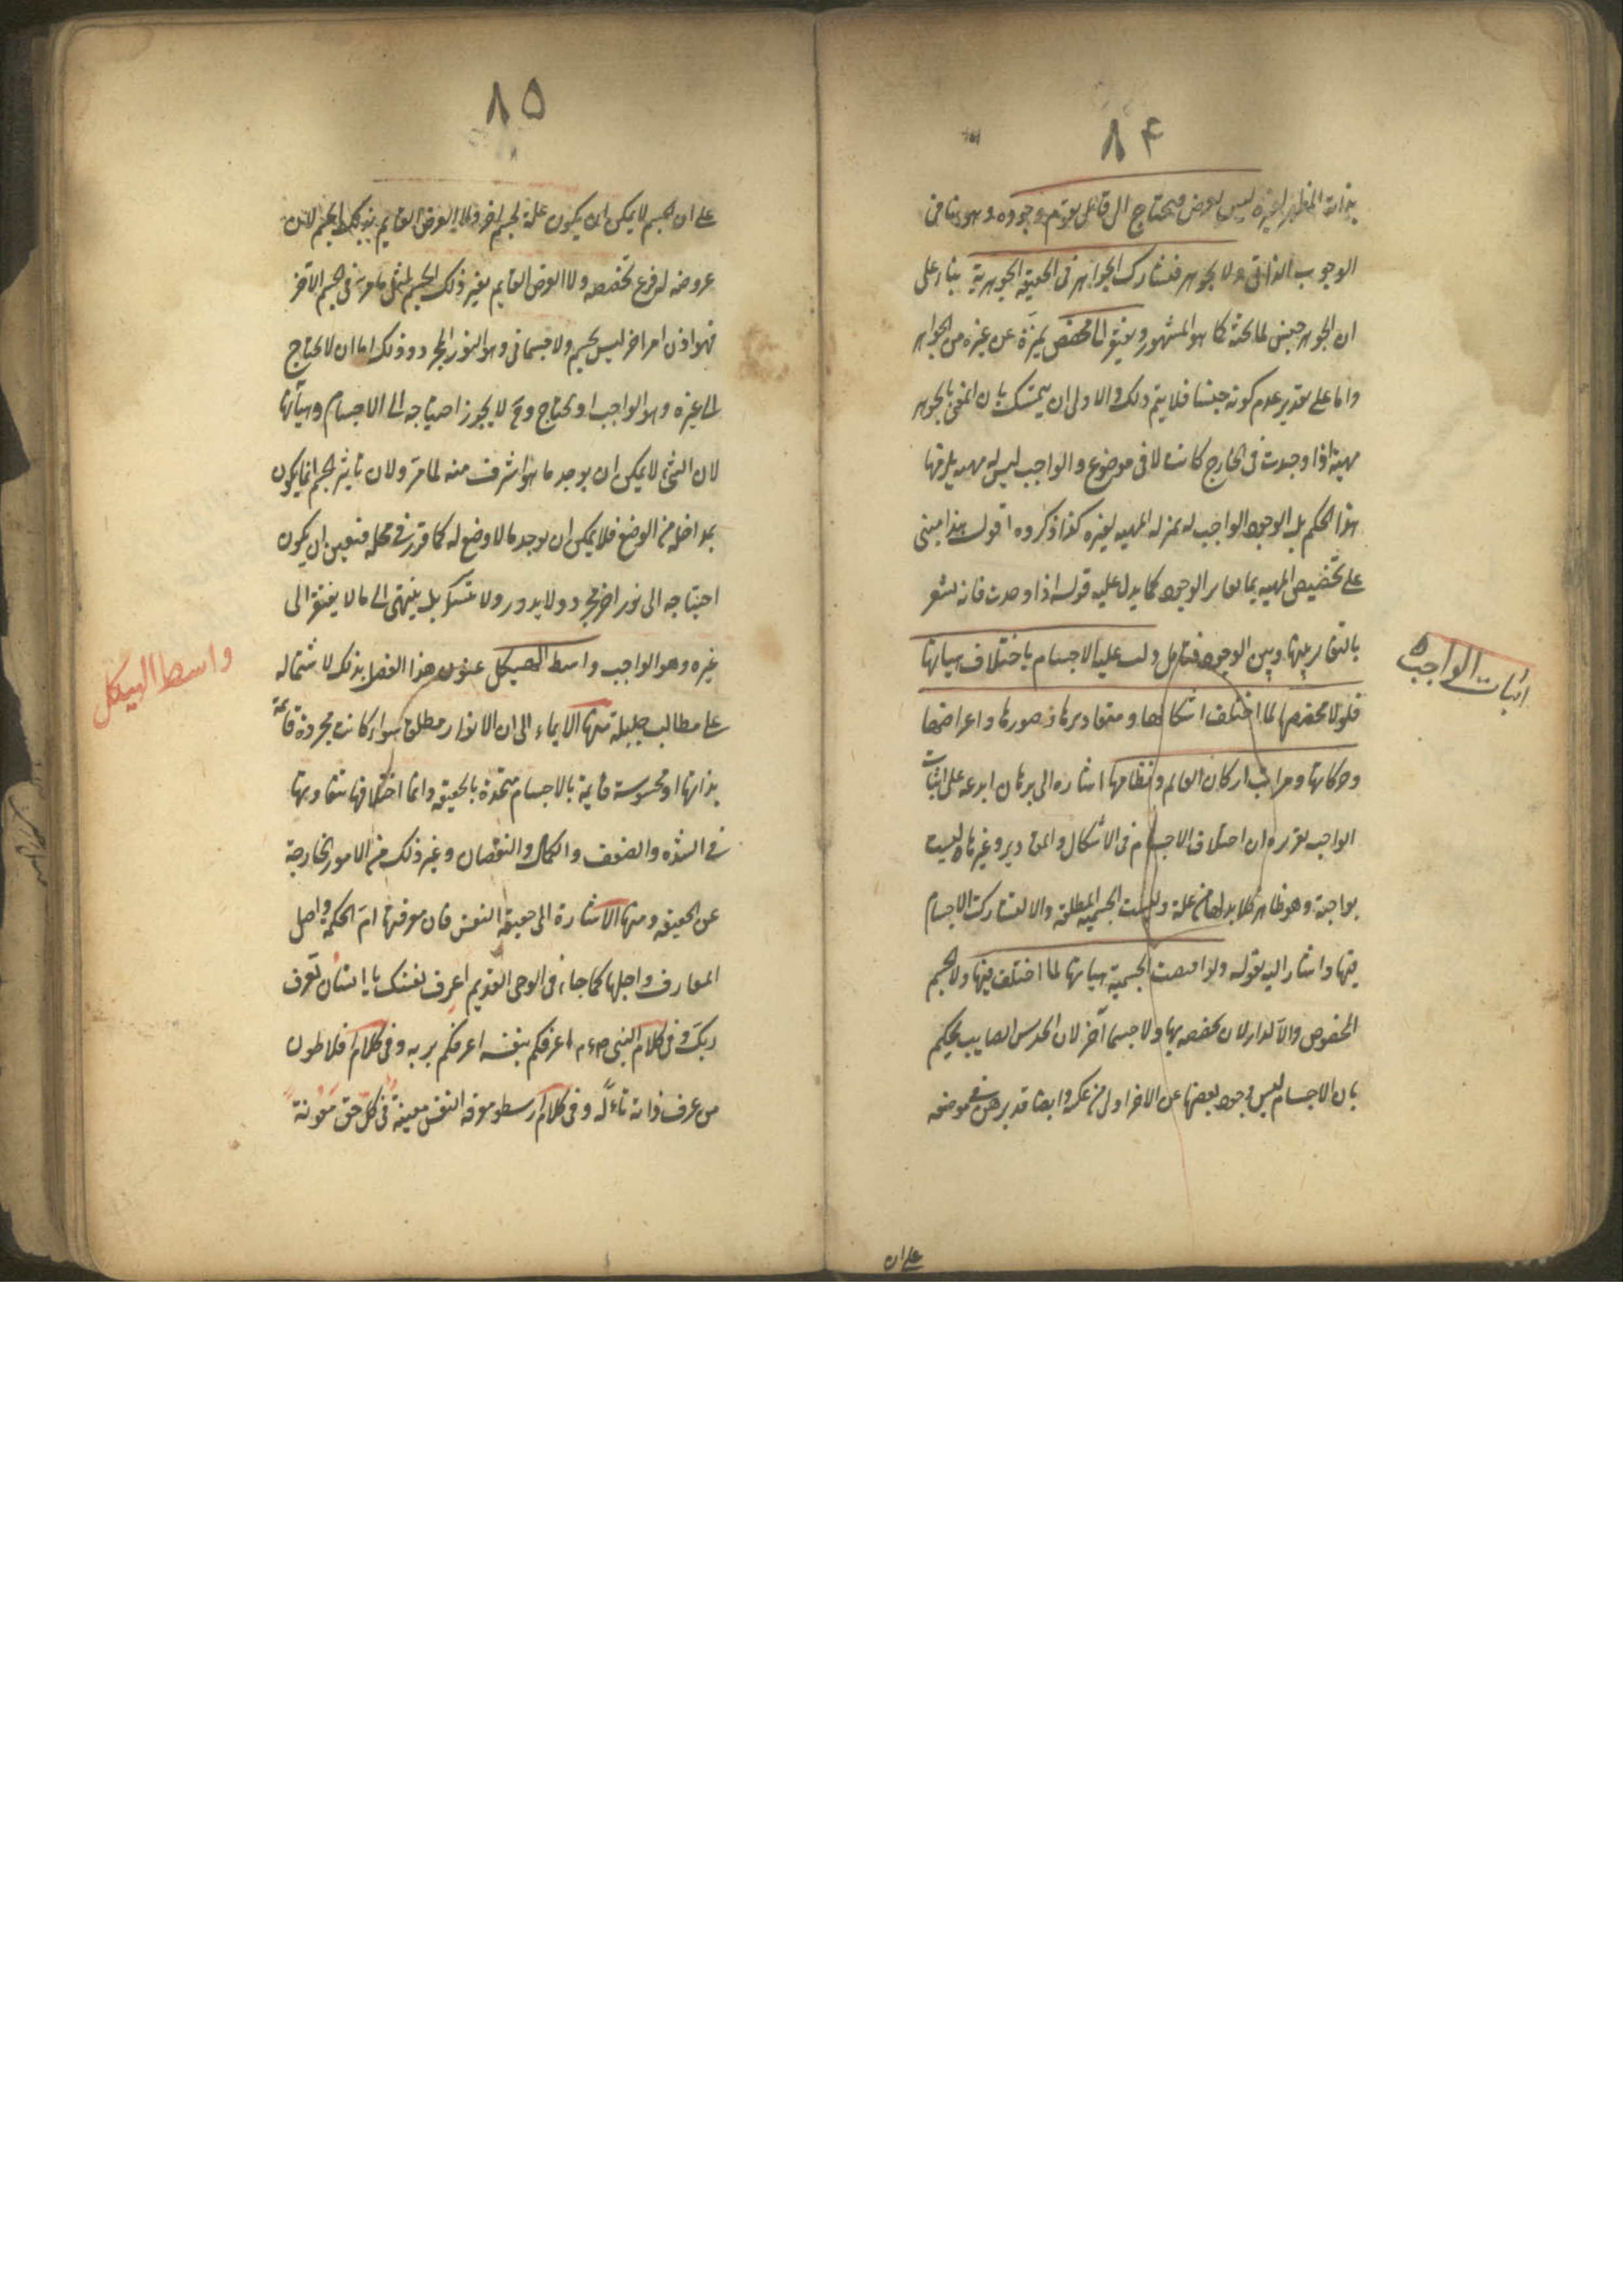 ٨۴
بذاته المظهر لغيره ليس بعرض فيحتاج الى قابل يقوم وجوده وهو ينافى
الوجوب الذاتى ولا بجوهر فتشارك الجواهر فى الحقيقة الجوهرية بناء على
ان الجوهر جنس لما تحته كما هو المشهور ويفتقر الى مخصص يميزه عن غيره من الجواهر
واما على تقدير عدم كونه جنسا فلا يتم ذلك والاولى ان يتمسك بان المعنى بالجوهر
مهية اذا وجدت فى الخارج كانت لا فى موضوع والواجب ليس له مهية يلزمها
هذا الحكم بل الوجود الواجب له بمنزلة المهية لغيره كذا ذكروه اقول هذا مبنى
على تخصيص المهية بما يغاير الوجود كما يدل عليه قوله اذا وجدت فانه يشعر
بالتغاير بينها وبين الوجود فتامل دلت عليه الاجسام باختلاف هيأتها
اثبات الواجب
فلولا مخصصها لما اختلف اشكالها ومقاديرها وصورها واعراضها
وحركاتها ومراتب اركان العالم ونظامها اشاره الى برهان ابدعه على اثبات
الواجب تقريره ان اختلاف الاجسام فى الاشكال والمقادير وغيرها ليست
بواجبة وهو ظاهر فلا بد لها من علة وليست الجسمية المطلقة والا لتشاركت الاجسام
فيها واشار اليه بقوله ولو اقتضت الجسمية هيأتها لما اختلف فيها ولا الجسم
المخصوص والا لدار لان تخصصه بها ولا جسما آخر لان الحدس الصايب يحكم
بان الاجسام ليس وجود بعضها عن الاخر اولى من عكسه وايضا قد برهن فى موضعه
على ان
٨۵
على ان الجسم لا يمكن ان يكون علة لجسم اخر ولا العرض القايم بذلك الجسم لان
عروضه له فرع تخصصه ولا العرض القايم بغير ذلك الجسم لمثل ما مر فى الجسم الآخر
فهو اذن امر اخر ليس بجسم ولا جسمانى وهو النور المجرد وذلك اما ان لا يحتاج
الى غيره وهو الواجب او يحتاج وح لا يجوز احتياجه الى الاجسام وهيأتها
لان الشئ لا يمكن ان يوجد ما هو اشرف منه لما مر ولان تاثير الجسم انما يكون
بمداخلة من الوضع فلا يمكن ان يوجد ما لا وضع له كما قرر فى محله فتعين ان يكون
احتياجه الى نور اخر مجرد ولا يدور ولا يتسلسل بل ينتهى الى ما لا يفتقر الى
غيره وهو الواجب واسط الهيكل عنون هذا الفصل بذلك لاشتماله
واسط الهيكل
على مطالب جليلة منها الايماء الى ان الانوار مطلقا سواء كانت مجردة قائمة
بذاتها او محسوسة قايمة بالاجسام متحدة بالحقيقة وانما اختلافها بتفاوتها
فى الشدة والضعف والكمال والنقصان وغير ذلك من الامور الخارجة
عن الحقيقه ومنها الاشارة الى حقيقة النفس فان معرفتها ام الحكمة واصل
المعارف واجلها كما جاء فى الوحى القديم اعرف نفسك يا انسان تعرف
ربك وفى كلام النبى اعرفكم بنفسه اعرفكم بربه وفى كلام افلاطون
من عرف ذاته تاله وفى كلام ارسطو معرفة النفس معينة فى كل حق معونة